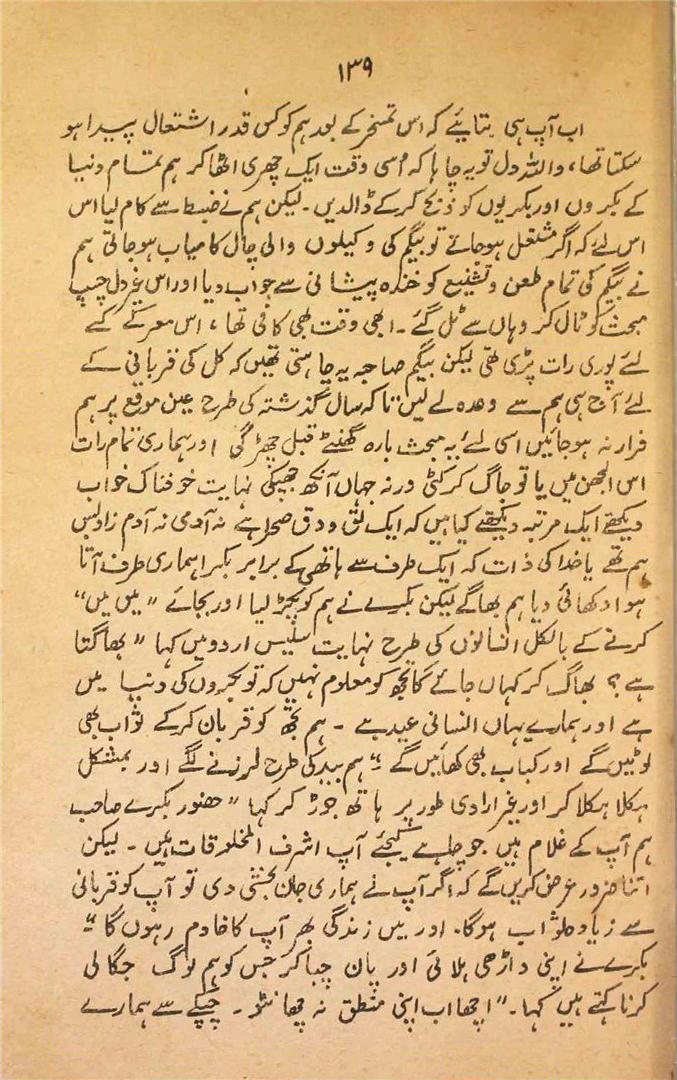 ۱۳۹
اب آپ ہی بتایئے کہ اس تمسخر کے بعد ہم کو کس قدر اشتعال پیدا ہو
سکتا تھا، واللہ دل تو یہ چاہا کہ اُسی وقت ایک چھری اٹھا کر ہم تمام دنیا
کے بکروں اور بکریوں کو ذبح کر کے ڈالدیں۔ لیکن ہم نے ضبط سے کام لیا اس
اس لئے کہ اگر مشتعل ہو جاتے تو بیگم کی وکیلوں والی چال کامیاب ہو جاتی ہم
نے بیگم کی تمام طعن و تشنیع کو خندہ پیشانی سے جواب دیا اور اس غیر دلچسپ
مبحث کو ٹال کر وہاں سے ٹل گئے۔ ابھی وقت بھی کافی تھا، اس معرکے کے
لئے پوری رات پڑی تھی لیکن بیگم صاحبہ یہ چاہتی تھیں کہ کل کی قربانی کے
لئے آج ہی ہم سے وعدہ لے لیں تاکہ سال گذشتہ کی طرح عین موقع پر ہم
فرار نہ ہو جائیں اسی لئے یہ مبحث بارہ گھنٹے قبل چھڑ گئی اور ہماری تمام رات
اس الجھن میں یا تو جاگ کر کٹی ورنہ جہاں آنکھ جھپکی نہایت خوفناک خواب
دیکھتے ایک مرتبہ دیکھتے کیا ہیں کہ ایک لق و دق صحرا ہے نہ آدمی نہ آدم زاد بس
ہم تھے یا خدا کی ذات کہ ایک طرف سے ہاتھی کے برابر بکرا ہماری طرف آتا
ہوا دکھائی دیا ہم بھاگے لیکن بکرے نے ہم کو پکڑ لیا اور بجائے "میں میں"
کرنے کے بالکل انسانوں کی طرح نہایت سلیس اردو میں کہا "بھاگتا
ہے؟ بھاگ کر کہاں جائے گا تجھ کو معلوم نہیں کہ تو بکروں کی دنیا میں
ہے اور ہمارے یہاں انسانی عید ہے۔ ہم تجھ کو قربان کر کے ثواب بھی
لوٹیں گے اور کباب بھی کھائیں گے۔" ہم بید کی طرح لرزنے لگے اور بمشکل
ہکلا ہکلا کر اور غیر ارادی طور پر ہاتھ جوڑ کر کہا "حضور بکرے صاحب
ہم آپ کے غلام ہیں جو چاہے کیجئے آپ اشرف المخلوقات ہیں۔ لیکن
اتنا ضرور عرض کریں گے کہ اگر آپ نے ہماری جان بخشی دی تو آپ کو قربانی
سے زیادہ ثواب ہوگا۔ اور میں زندگی بھر آپ کا خادم رہوں گا۔"
بکرے نے اپنی داڑھی ہلائی اور پان چبا کر جس کو ہم لوگ جگالی
کرنا کہتے ہیں کہا۔ "اچھا اب اپنی منطق نہ چھانٹو۔ چپکے سے ہمارے